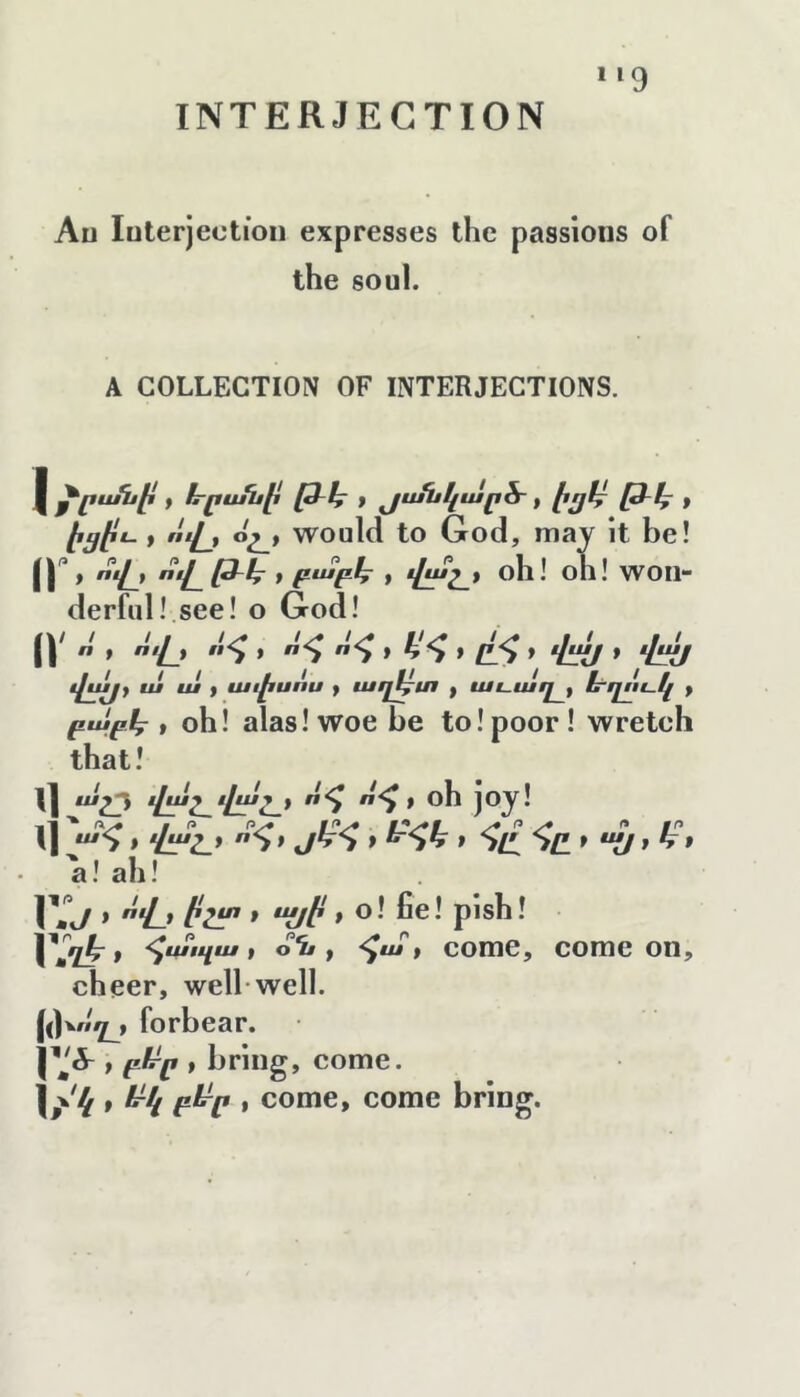 119
INTERJECTION
An Interjection expresses the passions of
the soul.
A COLLECTION OF INTERJECTIONS.
Երանի՛, երանի՛ թէ, յանկարծ, իցէ՛ թէ,
իցի՛ւ, ո՛վ, օշ, would to God, may it be!
Ո՞, ո՞վ, ո՞վ թէ, բա՛բէ, վա՛շ, oh! oh! won-
derful! see! o God!
Ո՛ ո՛, ո՛վ, ո՛հ, ո՛հ ո՛հ, է՛հ, ը՛հ, վա՛յ, վա՛յ
վա՛յ, ա՛ ա՛, ափսո՛ս, աղէ՛տ, աւա՛ղ, եղո՛ւկ,
բա՛բէ, oh! alas! woe be to! poor! wretch
that!
Ա՛շ, վա՛շ վա՛շ, ո՛հ ո՛հ, oh joy!
ա՛հ, վա՛շ, ո՛հ, է,
a! ah!
ո՛վ, ի՛շտ, այի՛, o! fie! pish!
հա՛պա, օ՛ն, հա՛, come, come on,
cheer, well well.
Թո՛ղ, forbear.
բե՛ր, bring, come.
Ե՛կ, ե՛կ բե՛ր, come, come bring.